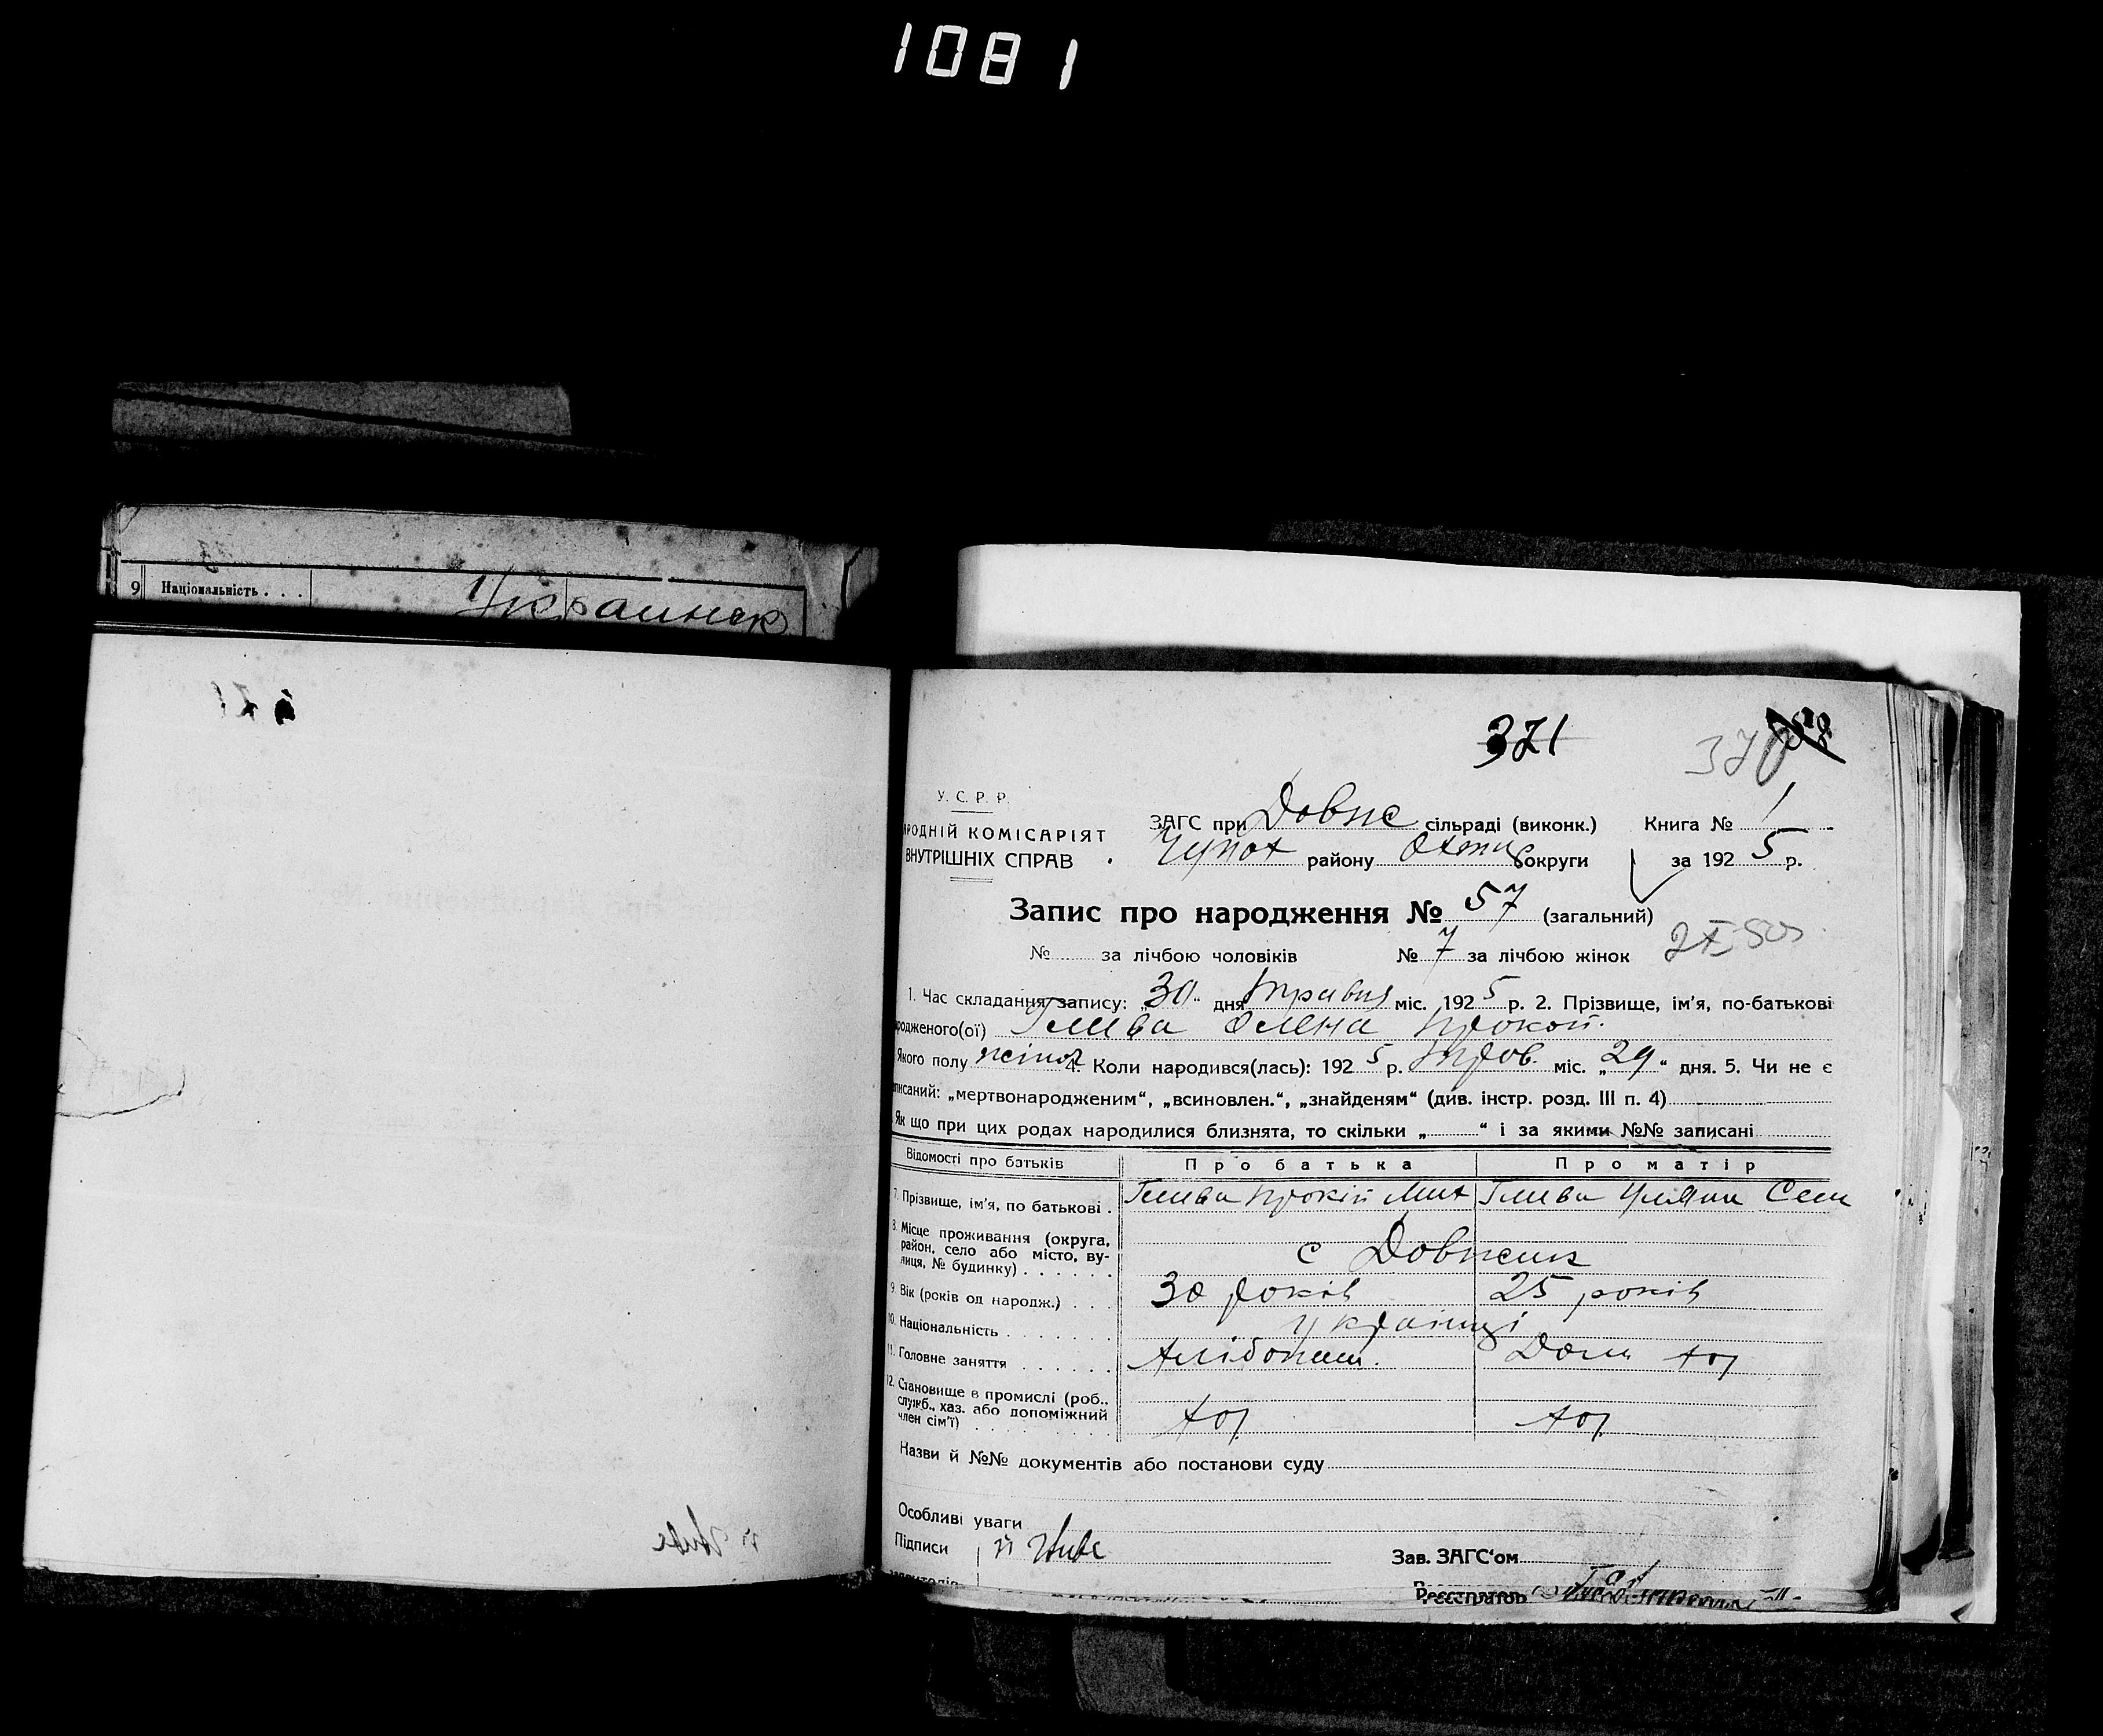 1081
9 Національність . . .
Украинск
371
370
У. С. Р. Р.
РОДНІЙ КОМІСАРІЯТ
ВНУТРІШНІХ СПРАВ
ЗАГС при Довже сільраді (виконк.) Книга № 1
району Охтир округи за 192 5 р.
Запис про народження № 57 (загальний)
№ за лічбою чоловіків № 7 за лічбою жінок
1. Час складання запису: „30“ дня травня міс. 192 5 р. 2. Прізвище, ім'я, по-батькові
родженого(ої) Глива Олена Прокоп.
Якого полу жіноч 4. Коли народився(лась): 192 5 р. трав. міс. „29“ дня. 5. Чи не є
писаний: „мертвонародженим“, „всиновлен.“, „знайденям“ (див. інстр. розд. III п. 4)
Як що при цих родах народилися близнята, то скільки „ “ і за якими №№ записані
Відомості про батьків Про батька Про матір
7. Прізвище, ім'я, по батькові . Глива Прокіп Мих Глива Уляна Сем
8. Місце проживання (округа,
район, село або місто, ву-
лиця, № будинку) . . . . . . с Довжик
9. Вік (років од народж.) . . . 30 років 25 років
10. Національність . . . . . . . українці
11. Головне заняття . . . . . . Хлібопаш. Дом хоз
12. Становище в промислі (роб.,
служб., хаз. або допоміжний
член сім'ї) . . . . . . хоз хоз
Назви й №№ документів або постанови суду
Особливі уваги
Підписи
Зав. ЗАГС'ом
Реєстратор